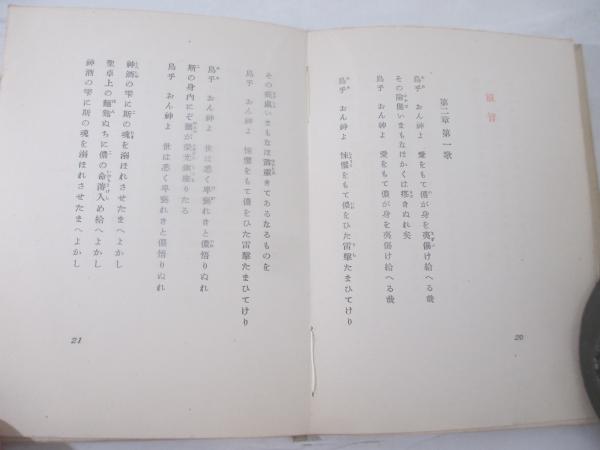 第二章第一歌
嗚乎 おん神よ 愛をもて儂が身を夷傷け給へる哉
その陰傷いまもなほかくは疼きぬれ矣
嗚乎 おん神よ 愛をもて儂が身を夷傷け給へる哉
嗚乎 おん神よ 悚懼をもて儂をひた雷撃たまひてけり
20
その いまもなほ きてあるなるものを
嗚乎 おん神よ 悚懼をもて儂をひた雷撃たまひてけり
嗚乎 おん神よ 世は悉く卑褻れきと儂悟りぬれ
斯の身内にぞ が栄光鎮座りたる
嗚乎 おん神よ 世は悉く卑褻れきと儂悟りぬれ
神酒の雫に斯の魂を溺ほれさせたまへよかし
聖卓上の麺麭ぬちに儂の命 入め給へよかし
神酒の雫に斯の魂を溺ほれさせたまへよかし
21